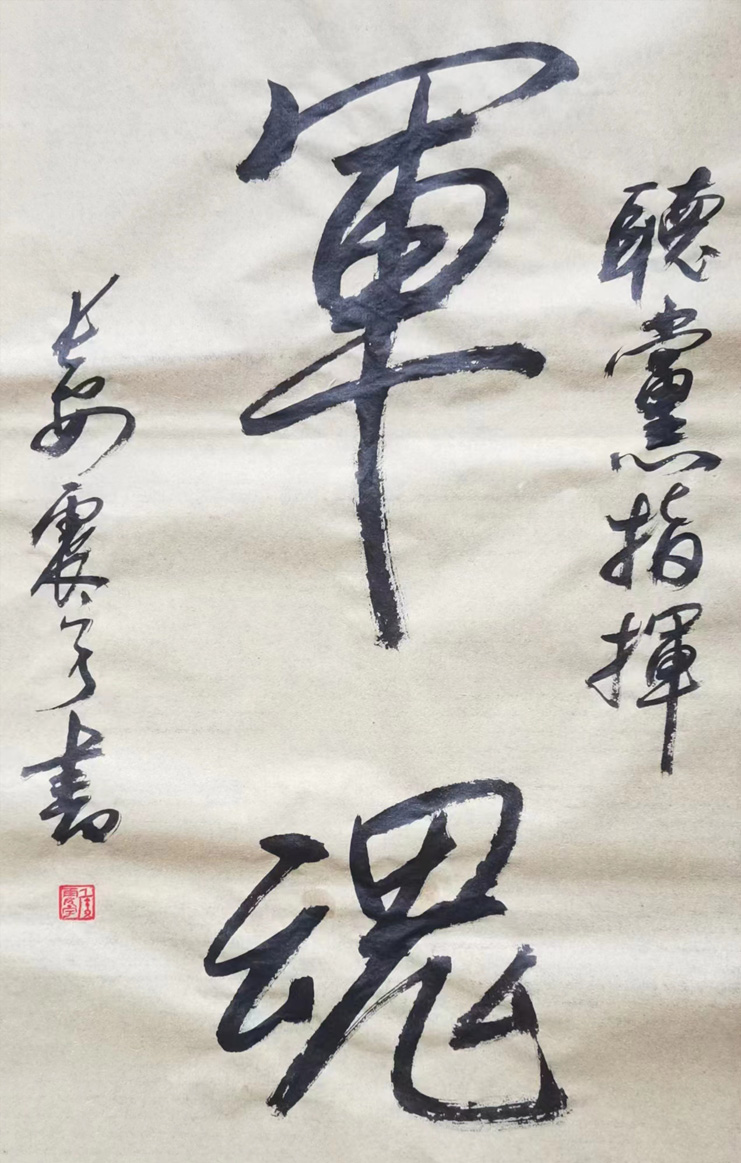 聽黨指揮
軍魂
長安震宇書